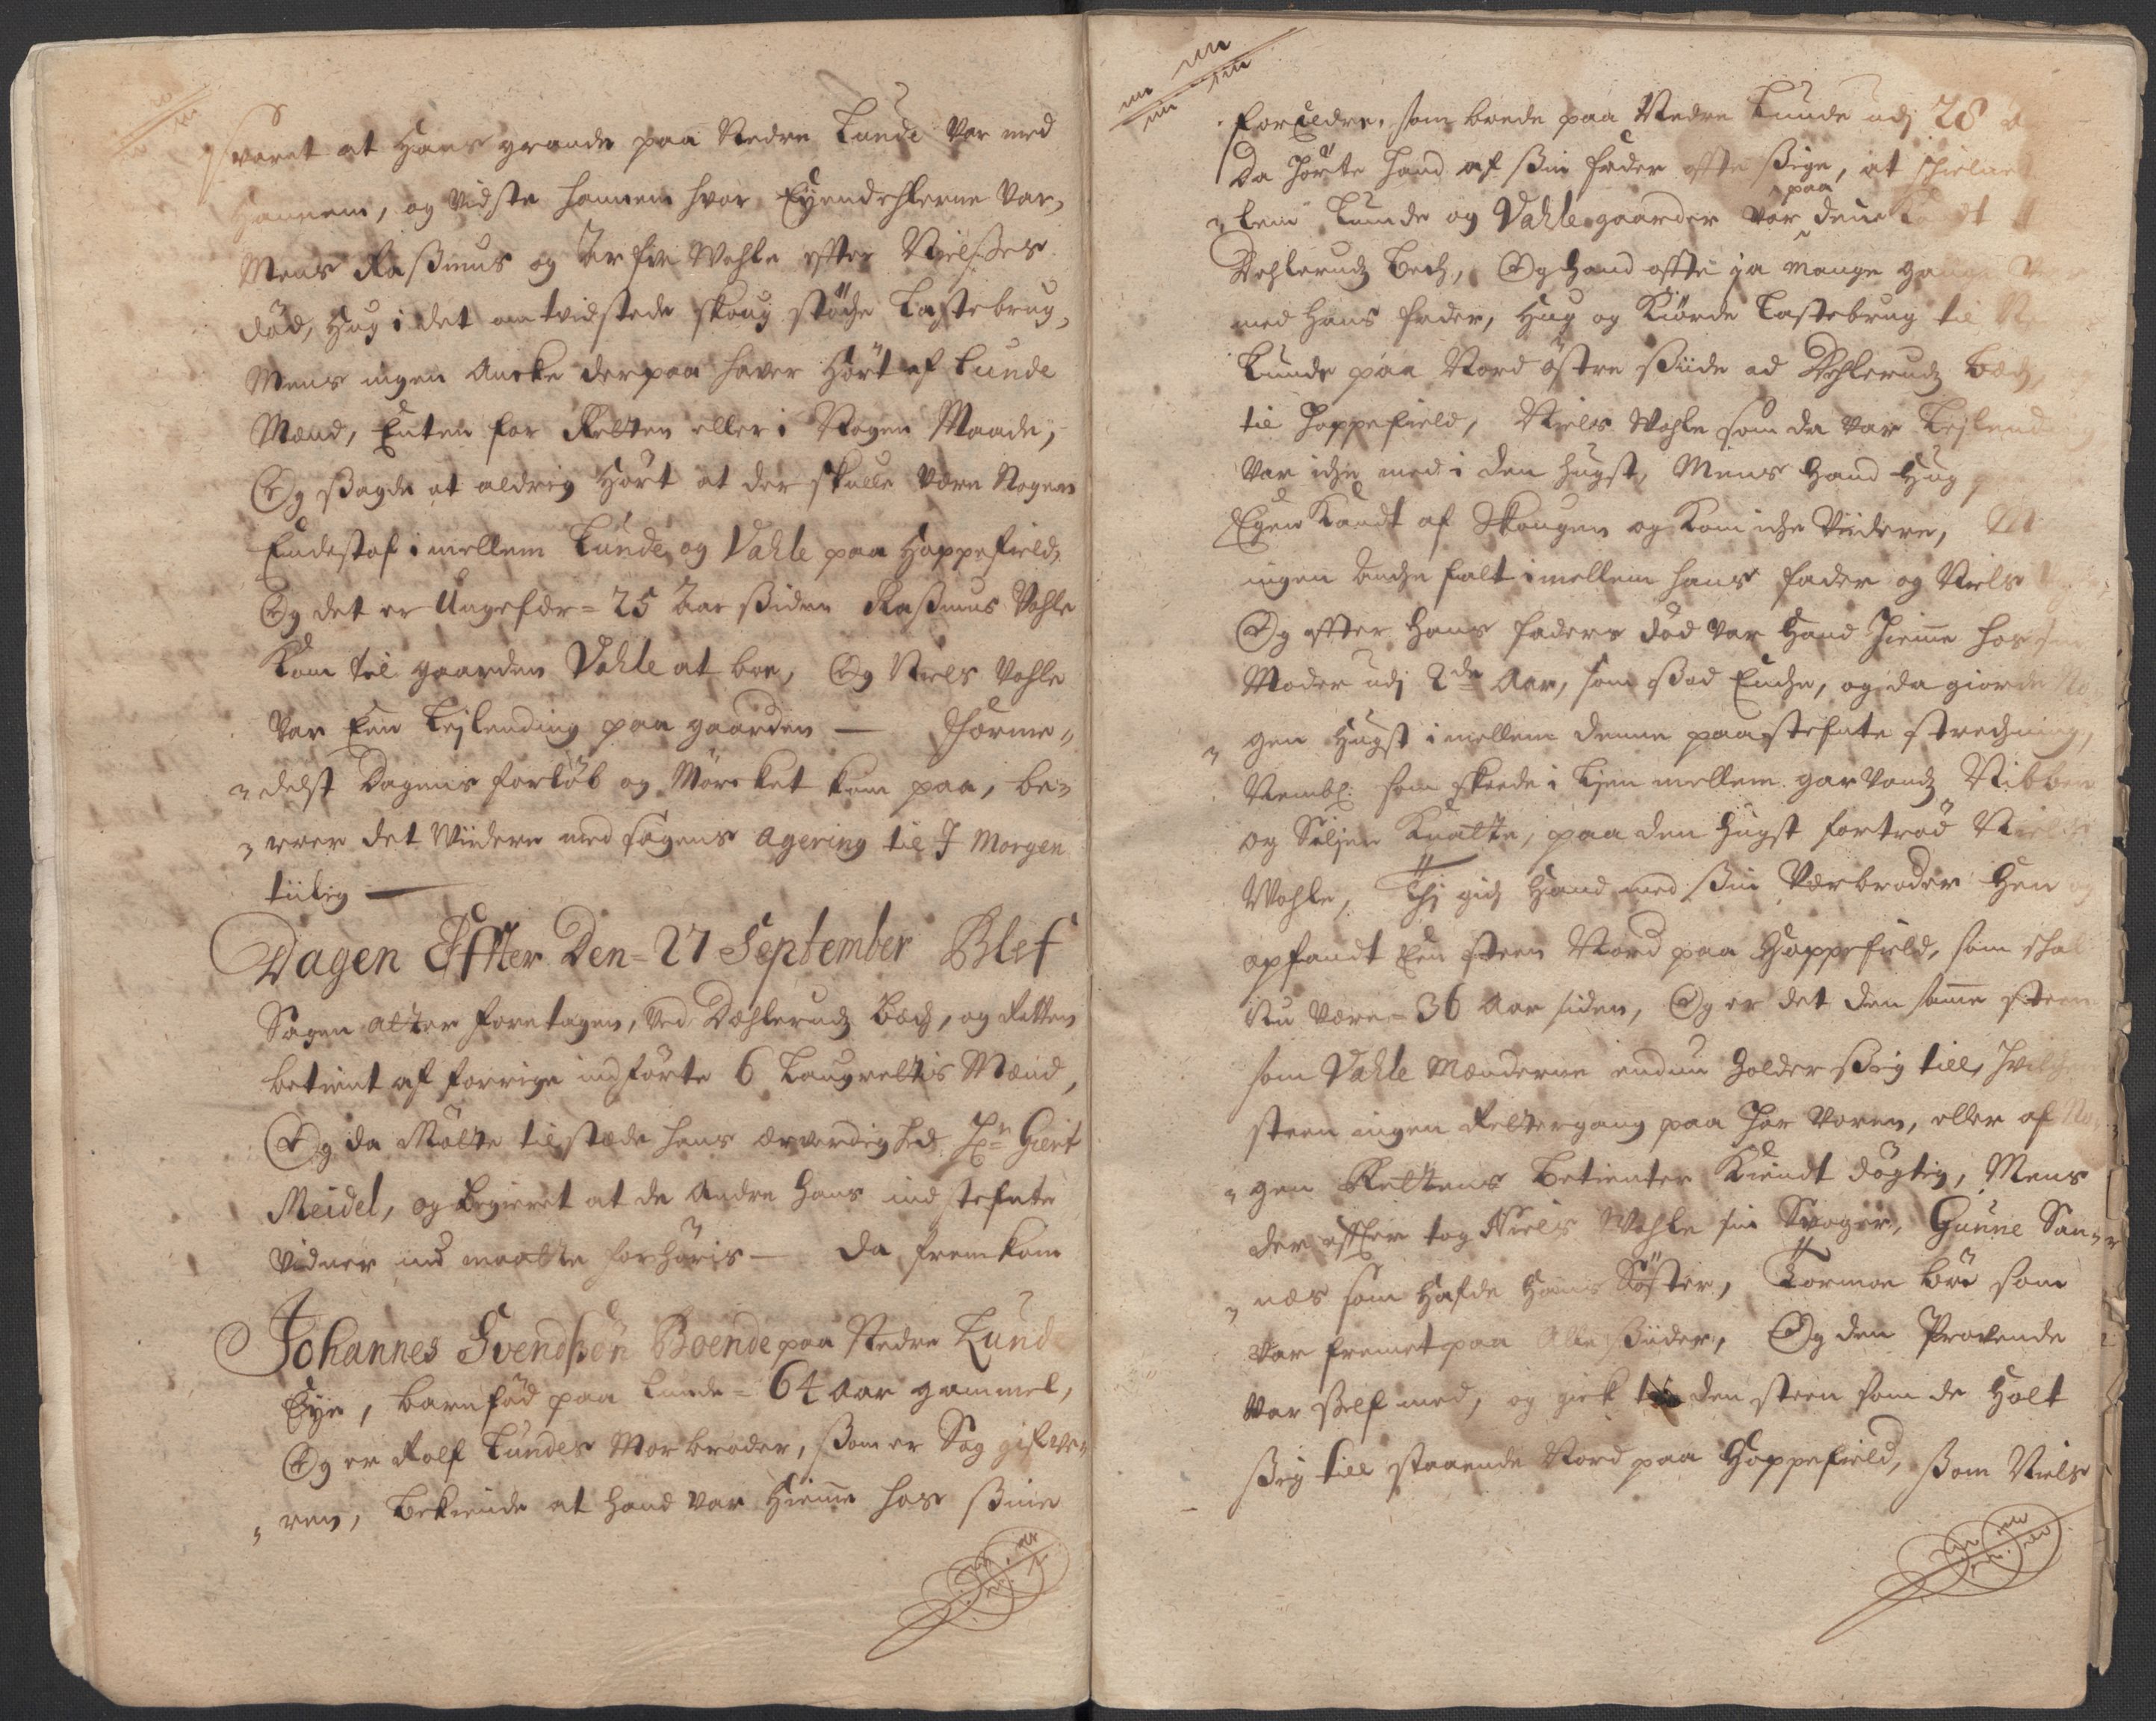 svaret at Hans grande paa Nedre Lunde var med
Hannem, og vidste hannem hvor Eyendehlerne var,
Mens Rasmus og Arfve Wahle efter Nielses
död, Hug i det omtvistede skoug støche Lastebrug,
Mens ingen Ancke derpaa haver Hört af Lunde
Mænd, Enten for Retten eller i Nogen Maade,
Og sagde at aldrig Hört at der skulle være Nogen
Endestaf imellem Lunde og Vahle paa Hoppefield,
Og det er Ungefær = 25 Aar siden Rasmus Vahle
Kom til gaarden Vahle at boe, Og Niels Vahle
var Een Leylending paa gaarden — Forme,,
delst Dagens forlöb og Mörcket kom paa, be-
roer det Viidere med sagens agering til I Morgen
tiilig —
Dagen Effter Den = 27 September Blef
Sagen atter foretagen, ved Dehlerudz Bech, og Retten
betient af forrige indförte 6 Laugrettis Mænd,
Og da Mötte tilstæde hans ærværdighed Hr Giert
Meidel, og begieret at de Andre Hans indstefnte
vidner nu maatte forhöris — da fremkom
Johannes Svendsön Boende paa Nedre Lunde
Eye, barnfød paa Lunde = 64 Aar gammel,
Og er Rolf Lundes Morbroder, som er Saggifve,,
ren, bekiende at Hand var Hieme hos sine
forældre, som boede paa Nedre Lunde udj 28
Da Hörte Hand af sin fader ofte sige, at skielnet
lem Lunde og Vahle gaarder var paa dene
Dehlerudz Bech, Og Hand ofte ja mange gange
med Hans fader, Hug og Kiörde Lastebrug til
Lunde paa Nord östre siide ad Dehlerudz Bech,
til Hoppefield, Niels Wahle som da var Leylending
var iche med i den Hugst, Mens Hand Hug
Egen Kandt af Skougen og Kom iche Viidere,
ingen Anche falt imellem hans fader og Niels
Og efter Hans faders död var Hand Hieme hos
Moder udj 2de Aar, som sad Enche, og da giorde No
gen Hugst imellem denne paastefnte strechning,
Nembl: som skeede i Lien mellem gar vandz Nibben
og Seljen Knatte, paa den Hugst fortröd Niels
Wahle, Thj gich Hand med sin Værbroder Hen og
opfandt Een steen Nord paa Hoppefield, som skal
Nu være = 36 Aar siden, Og er det den samme steen
som Vahle Mænderne endnu Holder sig till, Hvilchen
steen ingen Rettergang paa Har været, eller af No
gen Rettens Betienter Kiendt dögtig, Mens
der effter tog Niels Wahle sin Svoger, Gunne San,,
næs som Hafde Hans Söster, Tormoe Böe som
var fremet paa Alle siider, Og den Provende
var self med, og gick til den steen som de Holt
sig till staaende Nord paa Hoppefield, som Niels